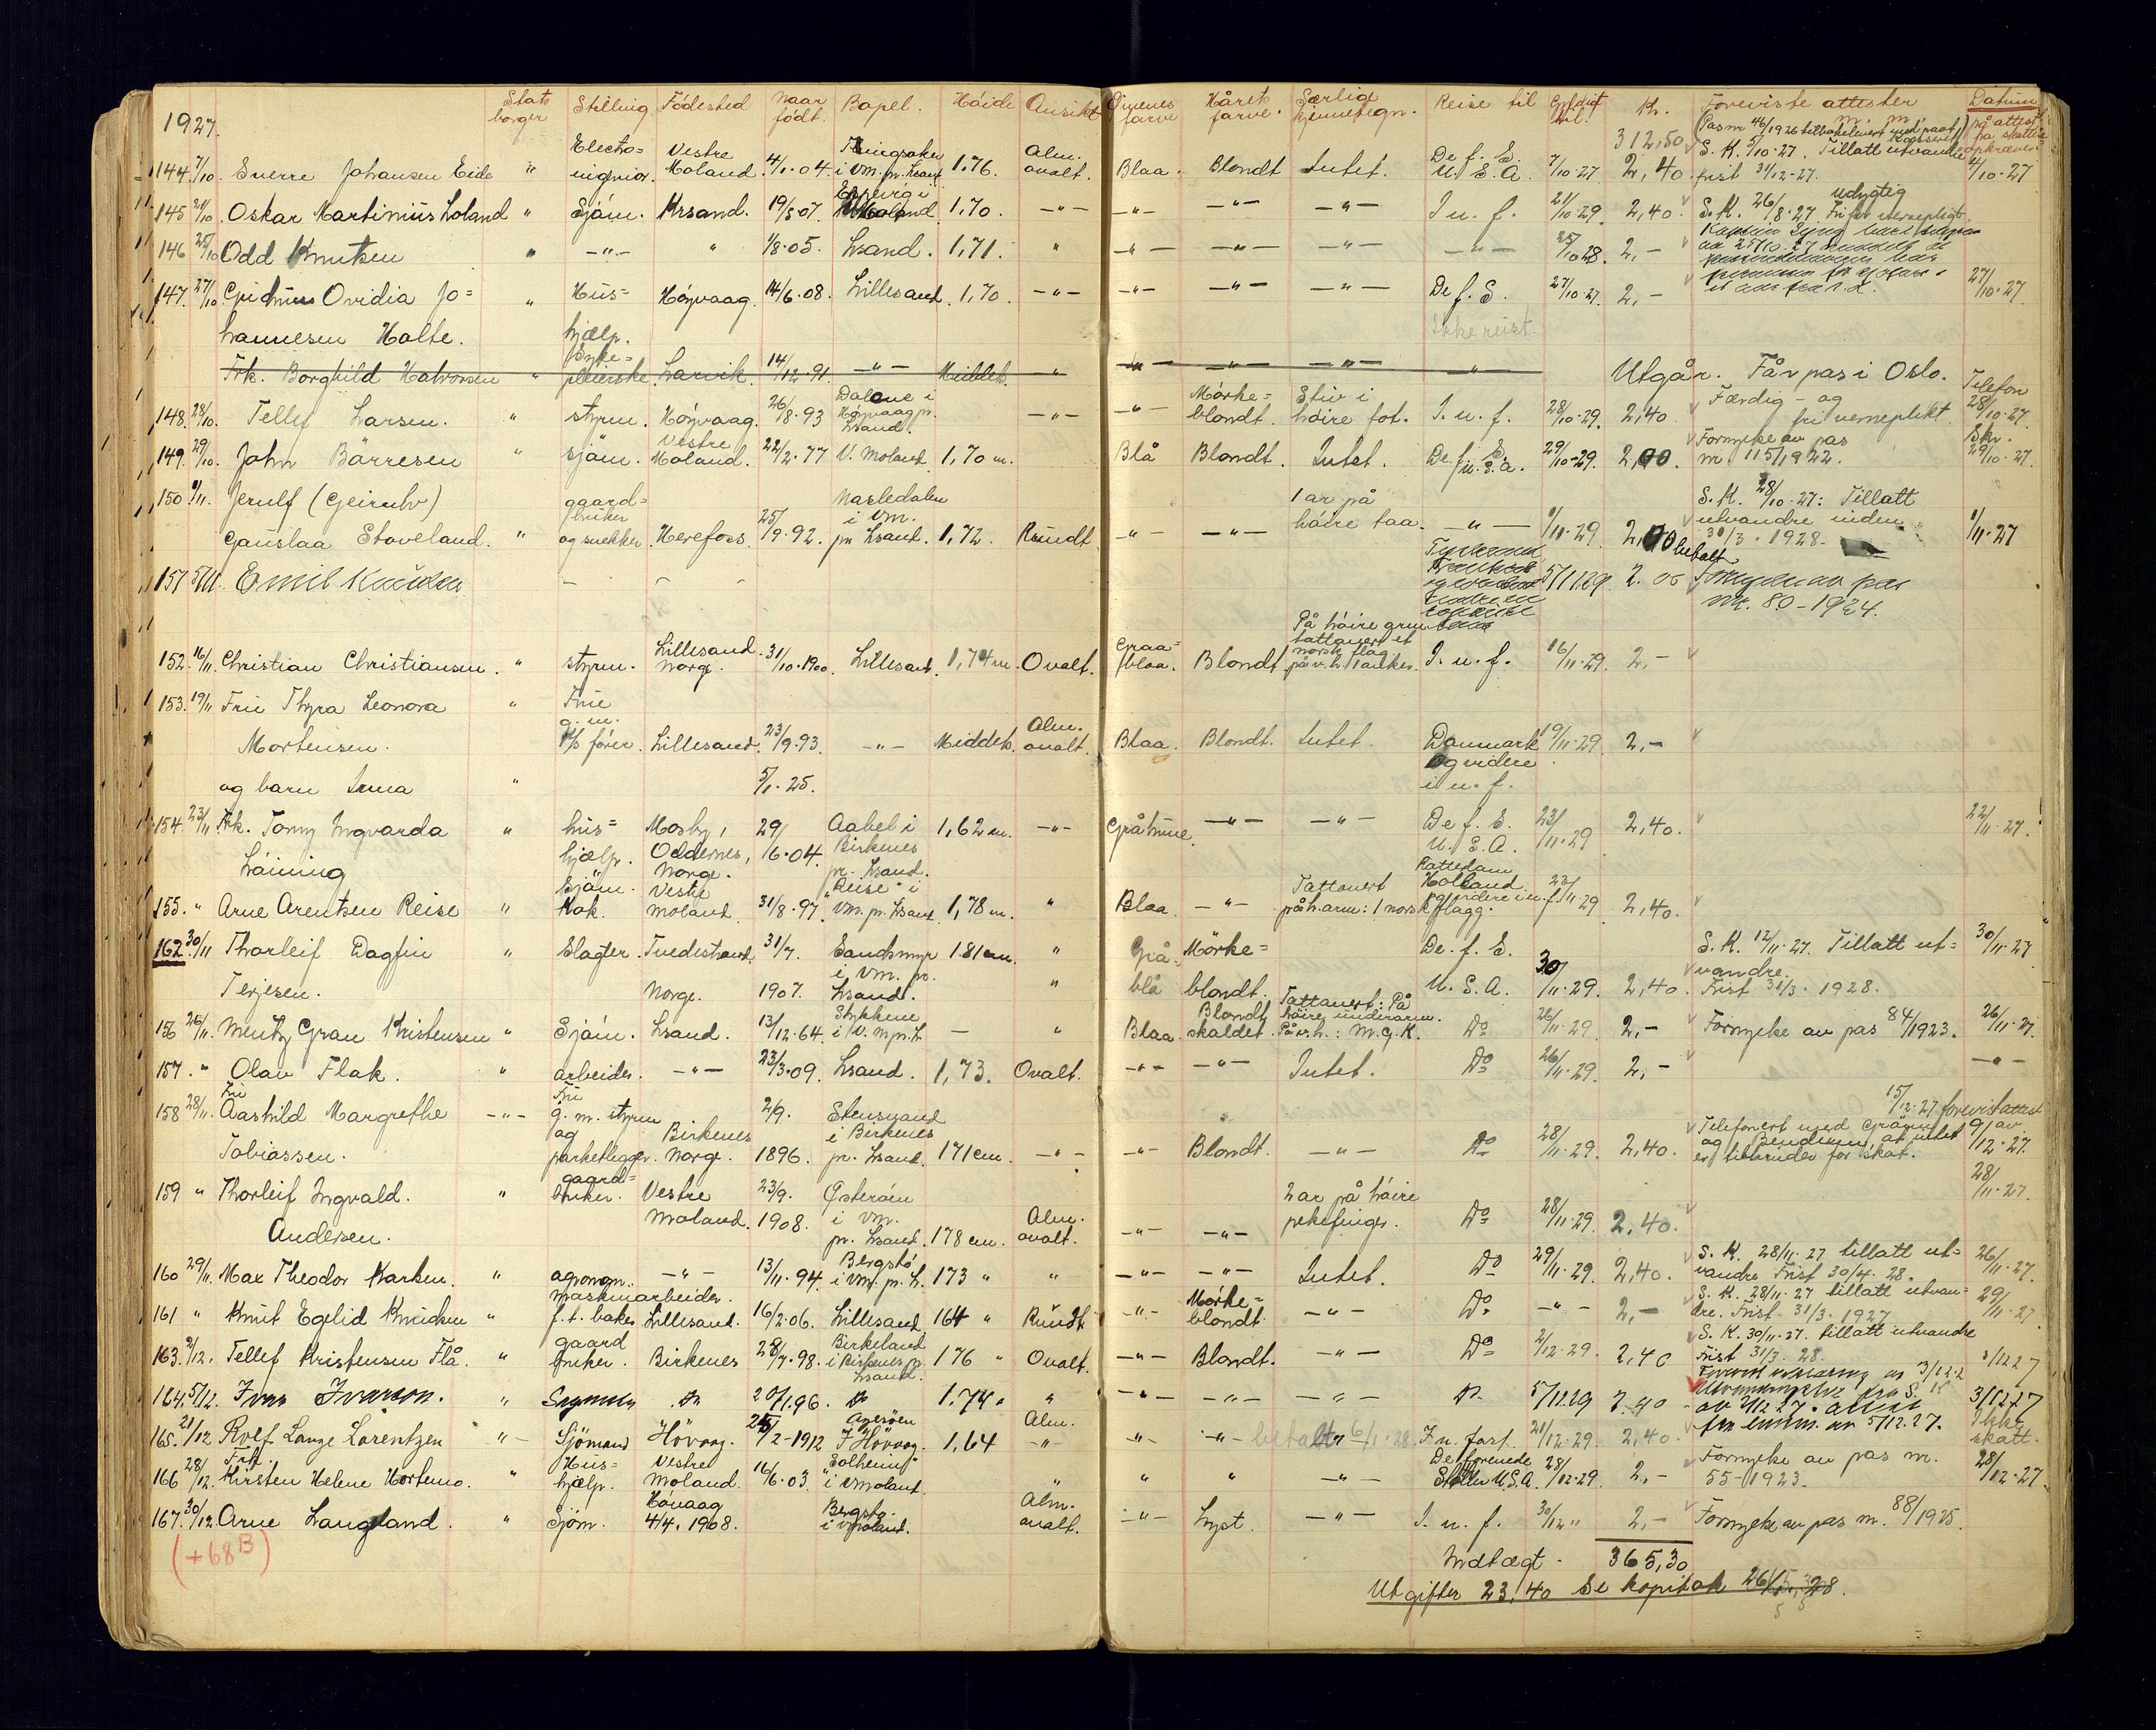 1927.
Stats borger Stilling Födested Naar födt. Bopel. Höide Ansikt Öinenes farve Hårets farve. Særlige kjennetegn. Reise til Gyldig til. Kr. Foreviste attester m. m. Datum på attest
312,50
144. 7/10. Sverre Johansen Eide " Electro- ingeniör. Vestre Moland. 4/1.04. i Vm. pr. Lsand 1,76. Alm. ovalt. Blaa. Blondt Intet. De f. S. U. S. A. 7/10.27. 2,40. S. K. 5/10-27. Tillatt utvandre frist 31/12-27. 4/10.27
145 21/10. Oskar Martinius Loland " Sjöm. Krsand. 19/5 07. Moland 1,70. -"- -"- -"- -"- I u. f. 21/10.29. 2,40. S. K. 26/8.27. Udygtig Fri for verneplikt.
146 25/10 Odd Knutsen " -"- " 1/8.05. Lsand. 1,71. " -"- -"- -"- -"- 25/10 28. 2,-
147. 27/10. Ovidia Jo= " Hus= Höyvaag. 14/6.08. Lillesand. 1,70. -"- -"- -"- -"- De f. S. 27/10.27. 2,- 27/10.27
hannesen Holte. hjælp. Ikke reist.
Frk. Borghild Halvorsen " Syke= pleierske. Larvik. 14/12.91. -"- Middels. " -"- -"- -"- " Utgår. Får pas i Oslo.
148. 28/10. Tellef Larsen. " styrm. Höyvaag. 26/8.93 Dalene i Höyvaag pr. Lsand. -"- -"- Mörke= blondt. Stiv i höire fot. I. u. f. 28/10.29. 2,40. Færdig- og fri verneplikt. Telefon 28/10.27.
149. 29/10. John Bärresen " sjöm. Vestre Moland. 22/2.77 V. Moland. 1,70 m. Blå Blondt. Intet. De f. S. U.S.A. 29/10-29. 2,00. Fornyelse av pas nr. 115/1922. Skr. 29/10.27.
150 1/11. Jerulf (Geirulv) gaard= bruker Nasledalen i Vm. 1 ar på S. K. 28/10.27: Tillatt
Gauslaa Stoveland. " og snekker. Herefoss. 25/9.92. pr Lsand. 1,72. Rundt -"- -"- höire taa. -"- 1/11.29. 2,00 utvandre inden 30/3.1928. 1/11.27
151 5/11. Emil Knudsen - - - 5/11.29. 2.00 betalt Fornyelse av pas Nr. 80-1924.
152. 16/11. Christian Christiansen. " styrm. Lillesand. Norge. 31/10.1900. Lillesand. 1,74 m. Ovalt. Graa= blaa. Blondt På höire arm tattovert et norsk flag. på v. h. 1 anker. I. u. f. 16/11.29. 2,-
153. 19/11 Fru Thyra Leonora " Frue
Mortensen. g. m. förer. Lillesand. 23/9.93. -"- Middels. Alm. ovalt. Blaa. Blondt. Intet. Danmark og videre i u. f. 19/11.29. 2,-
og barn Irma " 5/1.25.
154. 23/11 Frk. Tonny Ingvarda " hus= hjælp. Mosby, Oddernes, Norge. 29/6.04. Aabel i Birkenes pr. Lsand. 1,62 m. -"- Gråbrune. -"- -"- De f. S. U. S. A. 23/11.29 2,40. 22/11.27.
Läining
155. " Arne Arentsen Reise " Sjöm. Kok. Vestre Moland. 31/8.97. "Reise" i Vm. pr. Lsand. 1,78 m. " Blaa. -"- Tattovert på h. arm: 1 norsk flagg. Rotterdam Holland og videre i u. f. 23/11 29 2,40.
162 30/11 Thorleif Dagfin " Slagter. Tvedestrand. 31/7. Sandsmyr 181 cm. " Grå- Mörke= De. f. S. S. K. 12/11.27. Tillatt ut= 30/11.27
Terjesen. Norge. 1907. i Vm. pr. Lsand. " blå blondt. U. S. A. 30/11.29. 2,40. vandre. Frist 31/3. 1928.
156 26/11. Mentz Gran Kristensen " Sjöm. Lsand. 13/12.64. Stykkene i V. M pr. L - " Blaa. Blondt skaldet. Tattovert: På höire underarm. På v. h.: M. G. K. Do 26/11.29. 2,- Fornyelse av pas 84/1923. 26/11.27.
157. " Olav Flak. " arbeider. -"- 23/3.09. Lsand. 1,73. Ovalt. -"- -"- Intet. Do 26/11.29. 2,- -"-
158 28/11. Fru Aashild Margrethe -"- Fru g. m. styrm 2/9. Stensvand i Birkenes 15/12.27 forevist attest
Tobiassen. og parketlegger. Birkenes Norge. 1896. pr. Lsand. 171 cm. -"- -"- Blondt. -"- Do 28/11.29. 2,40. Telefonert med er tilbruder for skat. 9/12.27.
159 " Thorleif Ingvald. " gaard= bruker. Vestre 23/9. Österöen 2 ar på höire 28/11.27.
Andersen. Moland. 1908. i Vm. pr. Lsand. 178 cm. Alm. ovalt. -"- -"- pekefinger. Do 28/11.29. 2,40.
160 29/11. Max Theodor Karlsen. " agronom. -"- 13/11.94. Bergstö i Vm. pr. L. 173 " " -"- -"- Intet. Do 29/11.29. 2,40. S. K. 28/11.27 tillatt ut= vandre Frist 30/4.28. 26/11.27.
161 " Knut Egelid Knudsen " maskinarbeider. f. t. baker Lillesand. 16/2.06. Lillesand 164 " Rundt -"- Mörke= blondt. -"- Do -"- 2,- S. K. 28/11.27 tillatt utvan= dre. Frist 31/3.1927 29/11.27
163. 2/12. Tellef Kristensen Flå. " gaard bruker. Birkenes 28/7.98. Birkeland i Birkenes pr. Lsand. 176 " Ovalt. -"- Blondt. -"- Do 2/12.29. 2,40 S. K. 30/11.27. tillatt utvandre Frist 31/3 28.
164. 5/12. Ivar Ivarson. " Do 20/1.96. Do 1.74. " -"- -"- -"- Do 5/12.29 2.40 3/12.27
165. 21/12. Rolf Lange Larentzen "- Sjömand Hövaag. 25/2-1912 Agerøen i Hövaag. 1,64 Alm. -"- " -"- betalt 6/1.28. I u. fast. 21/12.29. 2,40. Ikke skatt.
166 28/12. Frk. Kirsten Helene Hortemo. " Hus= hjælp. Vestre Moland. 16/6.03. "Solheim" i V Moland. " " -"- De forenede Stater U.S.A. 28/12.29. 2,- Fornyelse av pas nr. 55-1923. 28/12.27.
167. 30/12 Arne Langeland. " Sjöm. Hövaag 4/4. 1908. Bergstø. i V Moland. Alm. ovalt. -"- Lyst. -"- I. u. f. 30/12 " 2,- Fornyelse av pas nr. 88/1925.
(+68 B)
Indtægt. 365,30
Utgifter 23,40 Se kopibok